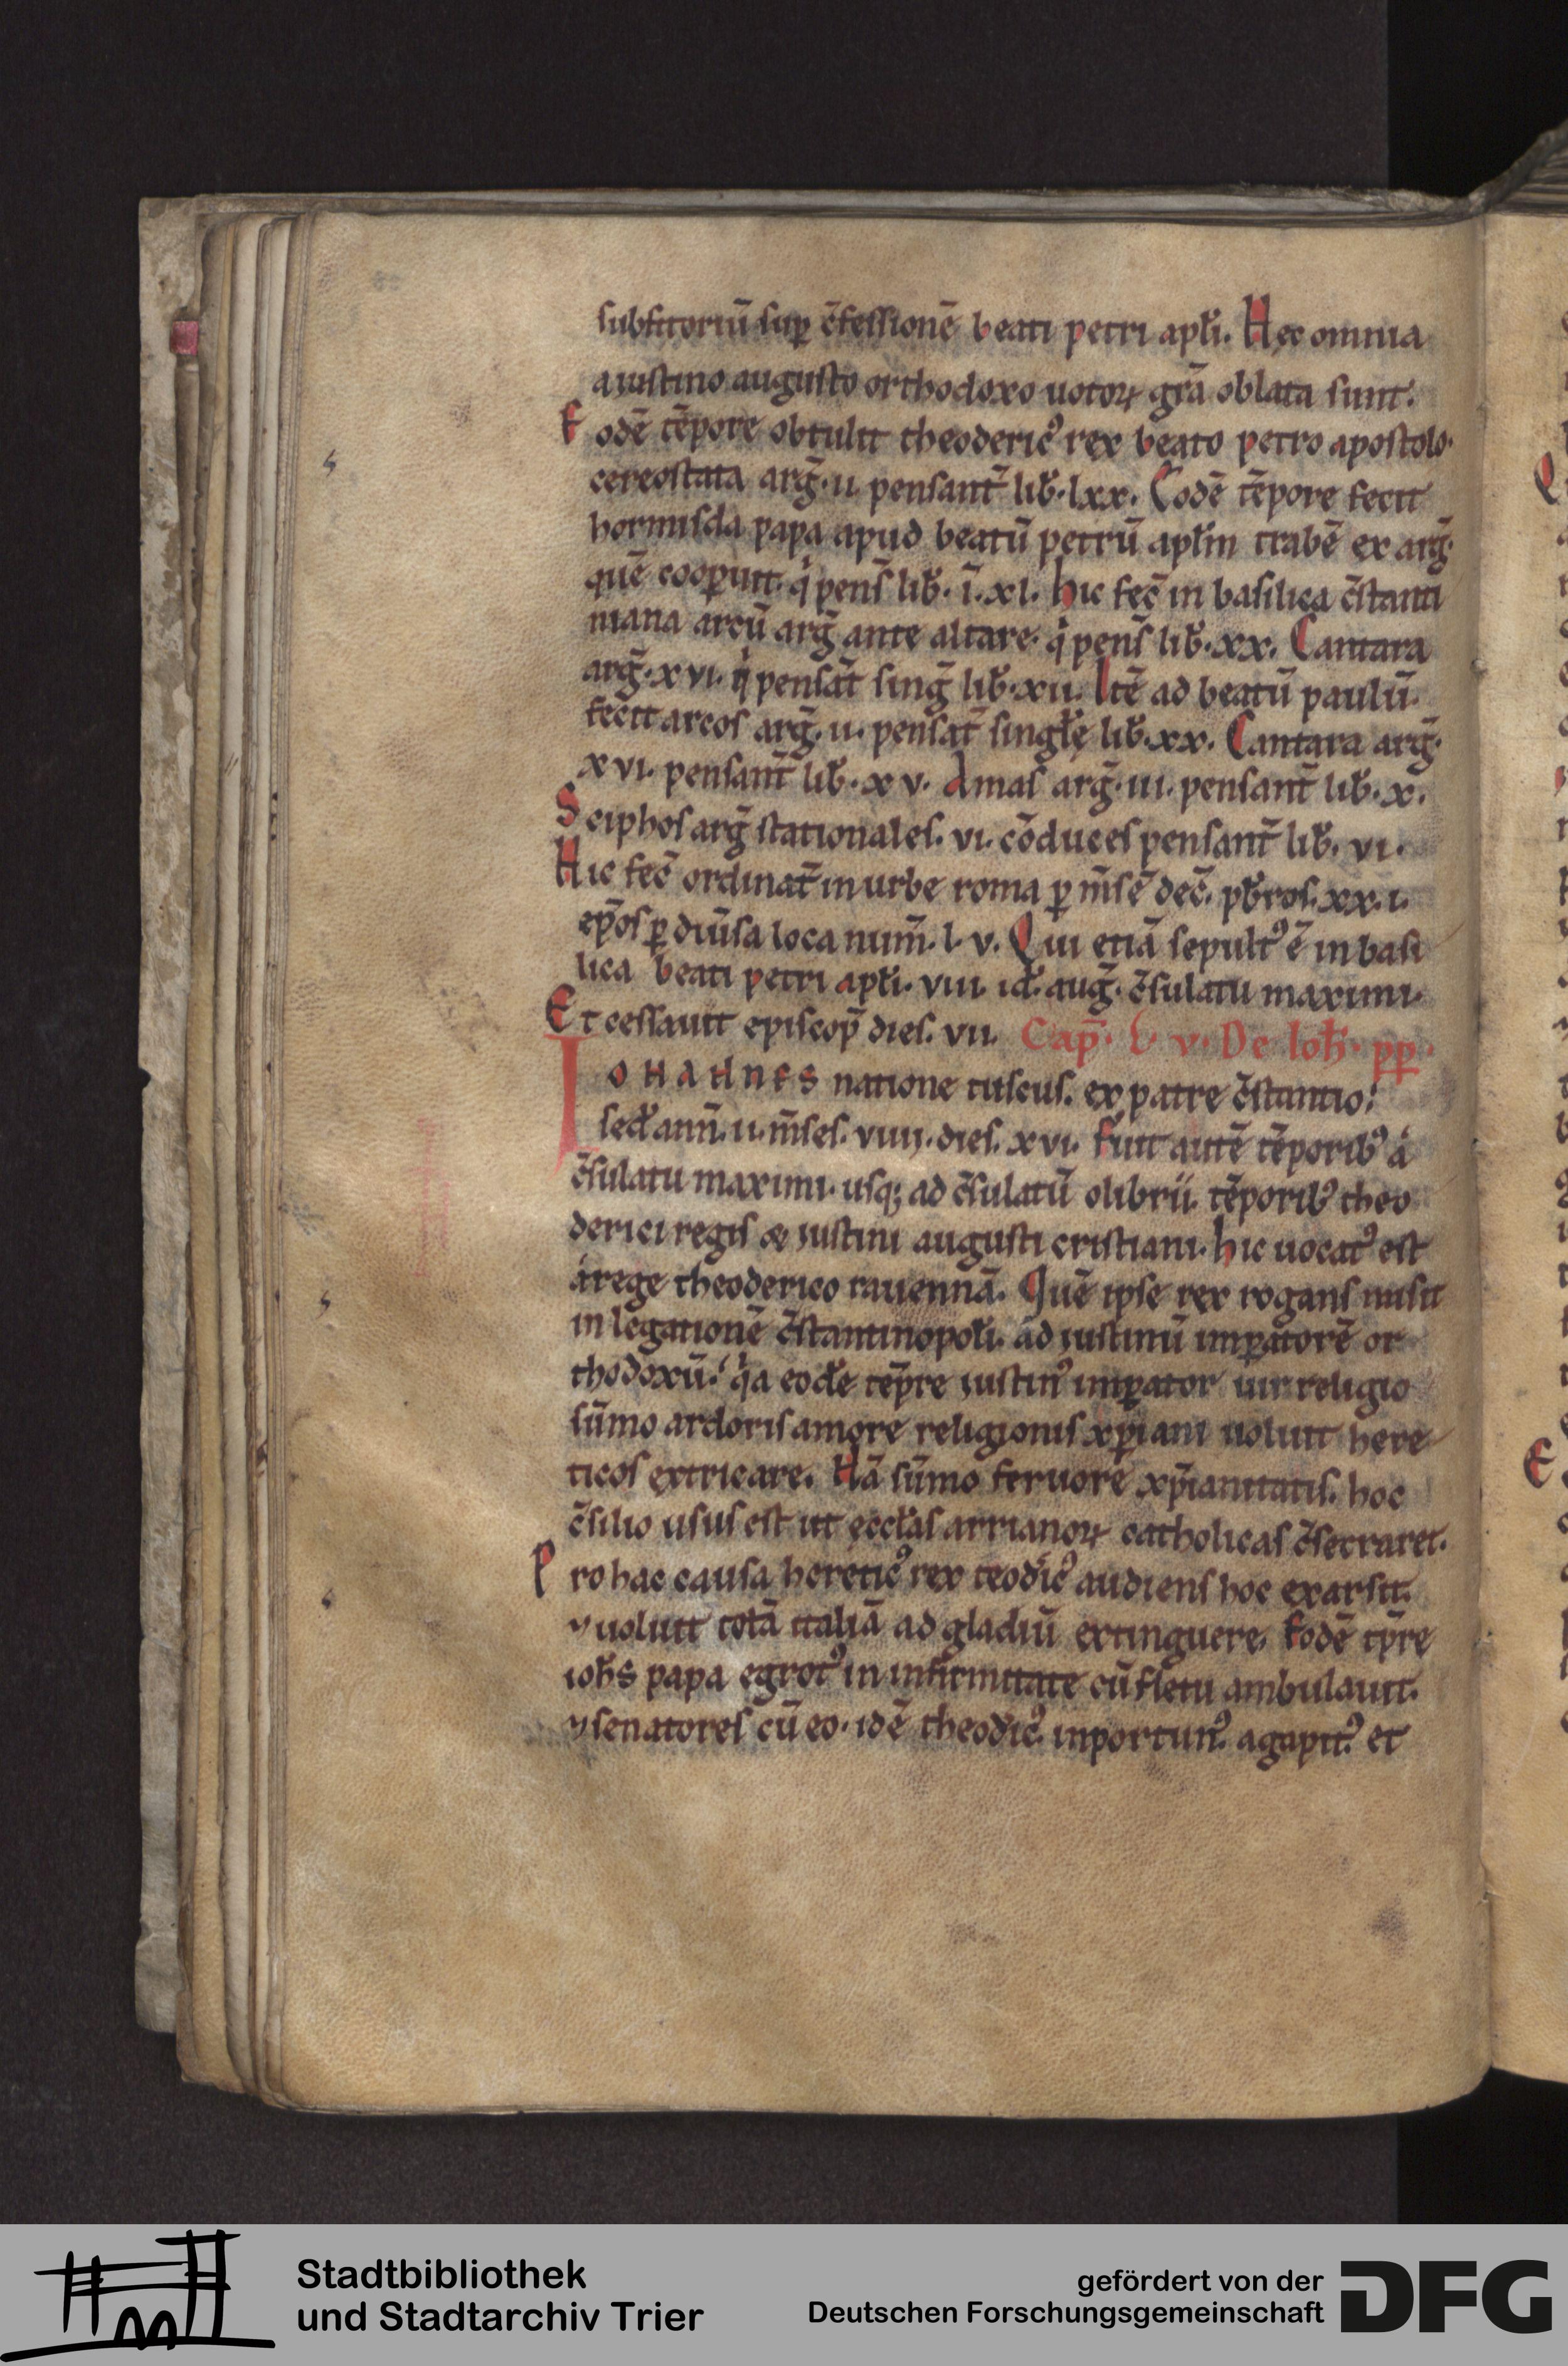 subfitoriũ sup̱ c̄fessionẽ beati petri apłi. Hec omnia
a iustino augusto orthodoxo uotoꝝ grã oblata sunt.
Eodẽ tẽpore obtulit theoderic᷒ rex beato petro apostolo.
cereostata arg̃. ii. pensant̃ lib̃. lxx. Eodẽ tẽpore fecit
hormisda papa apud beatũ petrũ aplm̃ trabẽ ex arg̃.
quẽ coopuit. q̇ pens̃ lib̃. ĩ. xl. hic fec̃ in basilica c̄stanti
niana arcũ arg̃ ante altare. q̇ pens̃ lib̃. xx. Cantara
arg̃. xvi. q̇ pensãt sing̃ lib̃. xii. Itẽ ad beatũ paulũ.
fecit arcos arg̃. ii. pensat̃ singłę lib̃. xx. Cantara arg̃.
xvi. pensant̃ lib̃. xv. Amas arg̃. iii. pensant̃ lib̃. x.
Sciphos arg̃ stationales. vi. cõduces pensant̃ lib̃. vi.
Hic fec̃ ordinat̃ in urbe roma ꝑ m̃sẽ dec̃. pb̃ros. xx. i.
ep̃os ꝑ diũsa loca num̃. l. v. Qui etiã sepult᷒ ẽ in basi
lica beati petri apłi. viii. id̃. aug̃. c̄sulatu maximi.
Et cessauit episcop̃ dies. vii. Cap̃. L. v. De Ioh̃. pp̱.
IOHANNES natione tuscus. ex patre c̄stantio;
sed̃ ann̄. ii. m̃ses. viiij. dies. xvi. Fuit autẽ tẽporib᷒ á
c̄sulatu maximi. usq; ad c̄sulatũ olibrii. tẽporib᷒ theo
derici regis & iustini augusti cristiani. hic uocat᷒ est
á rege theoderico rauennã. Quẽ ipse rex rogans misit
in legationẽ c̄stantinopołi. ad iustinũ imꝑatorẽ or
thodoxũ. q̇a eodẽ tep̃re iustin᷒ imꝑator uir religio
sũmo ardoris amore religionis xp̃iani uoluit here
ticos extricare. Nã sũmo feruore xp̃ianitatis. hoc
c̄silio usus est ut ęccłas arrianoꝝ catholicas c̄secraret.
Pro hac causa heretic᷒ rex teodic᷒ audiens hoc exarsit.
⁊ uoluit totã italiã ad gladiũ extinguere. Eodẽ tp̃re
ioh̃s papa egrot᷒ in infirmitate cũ fletu ambulauit.
⁊ senatores cũ eo. idẽ theodic᷒. inportun᷒. agapit᷒. et
Stadtbibliothek
und Stadtarchiv Trier
gefördert von der
Deutschen Forschungsgemeinschaft
DFG